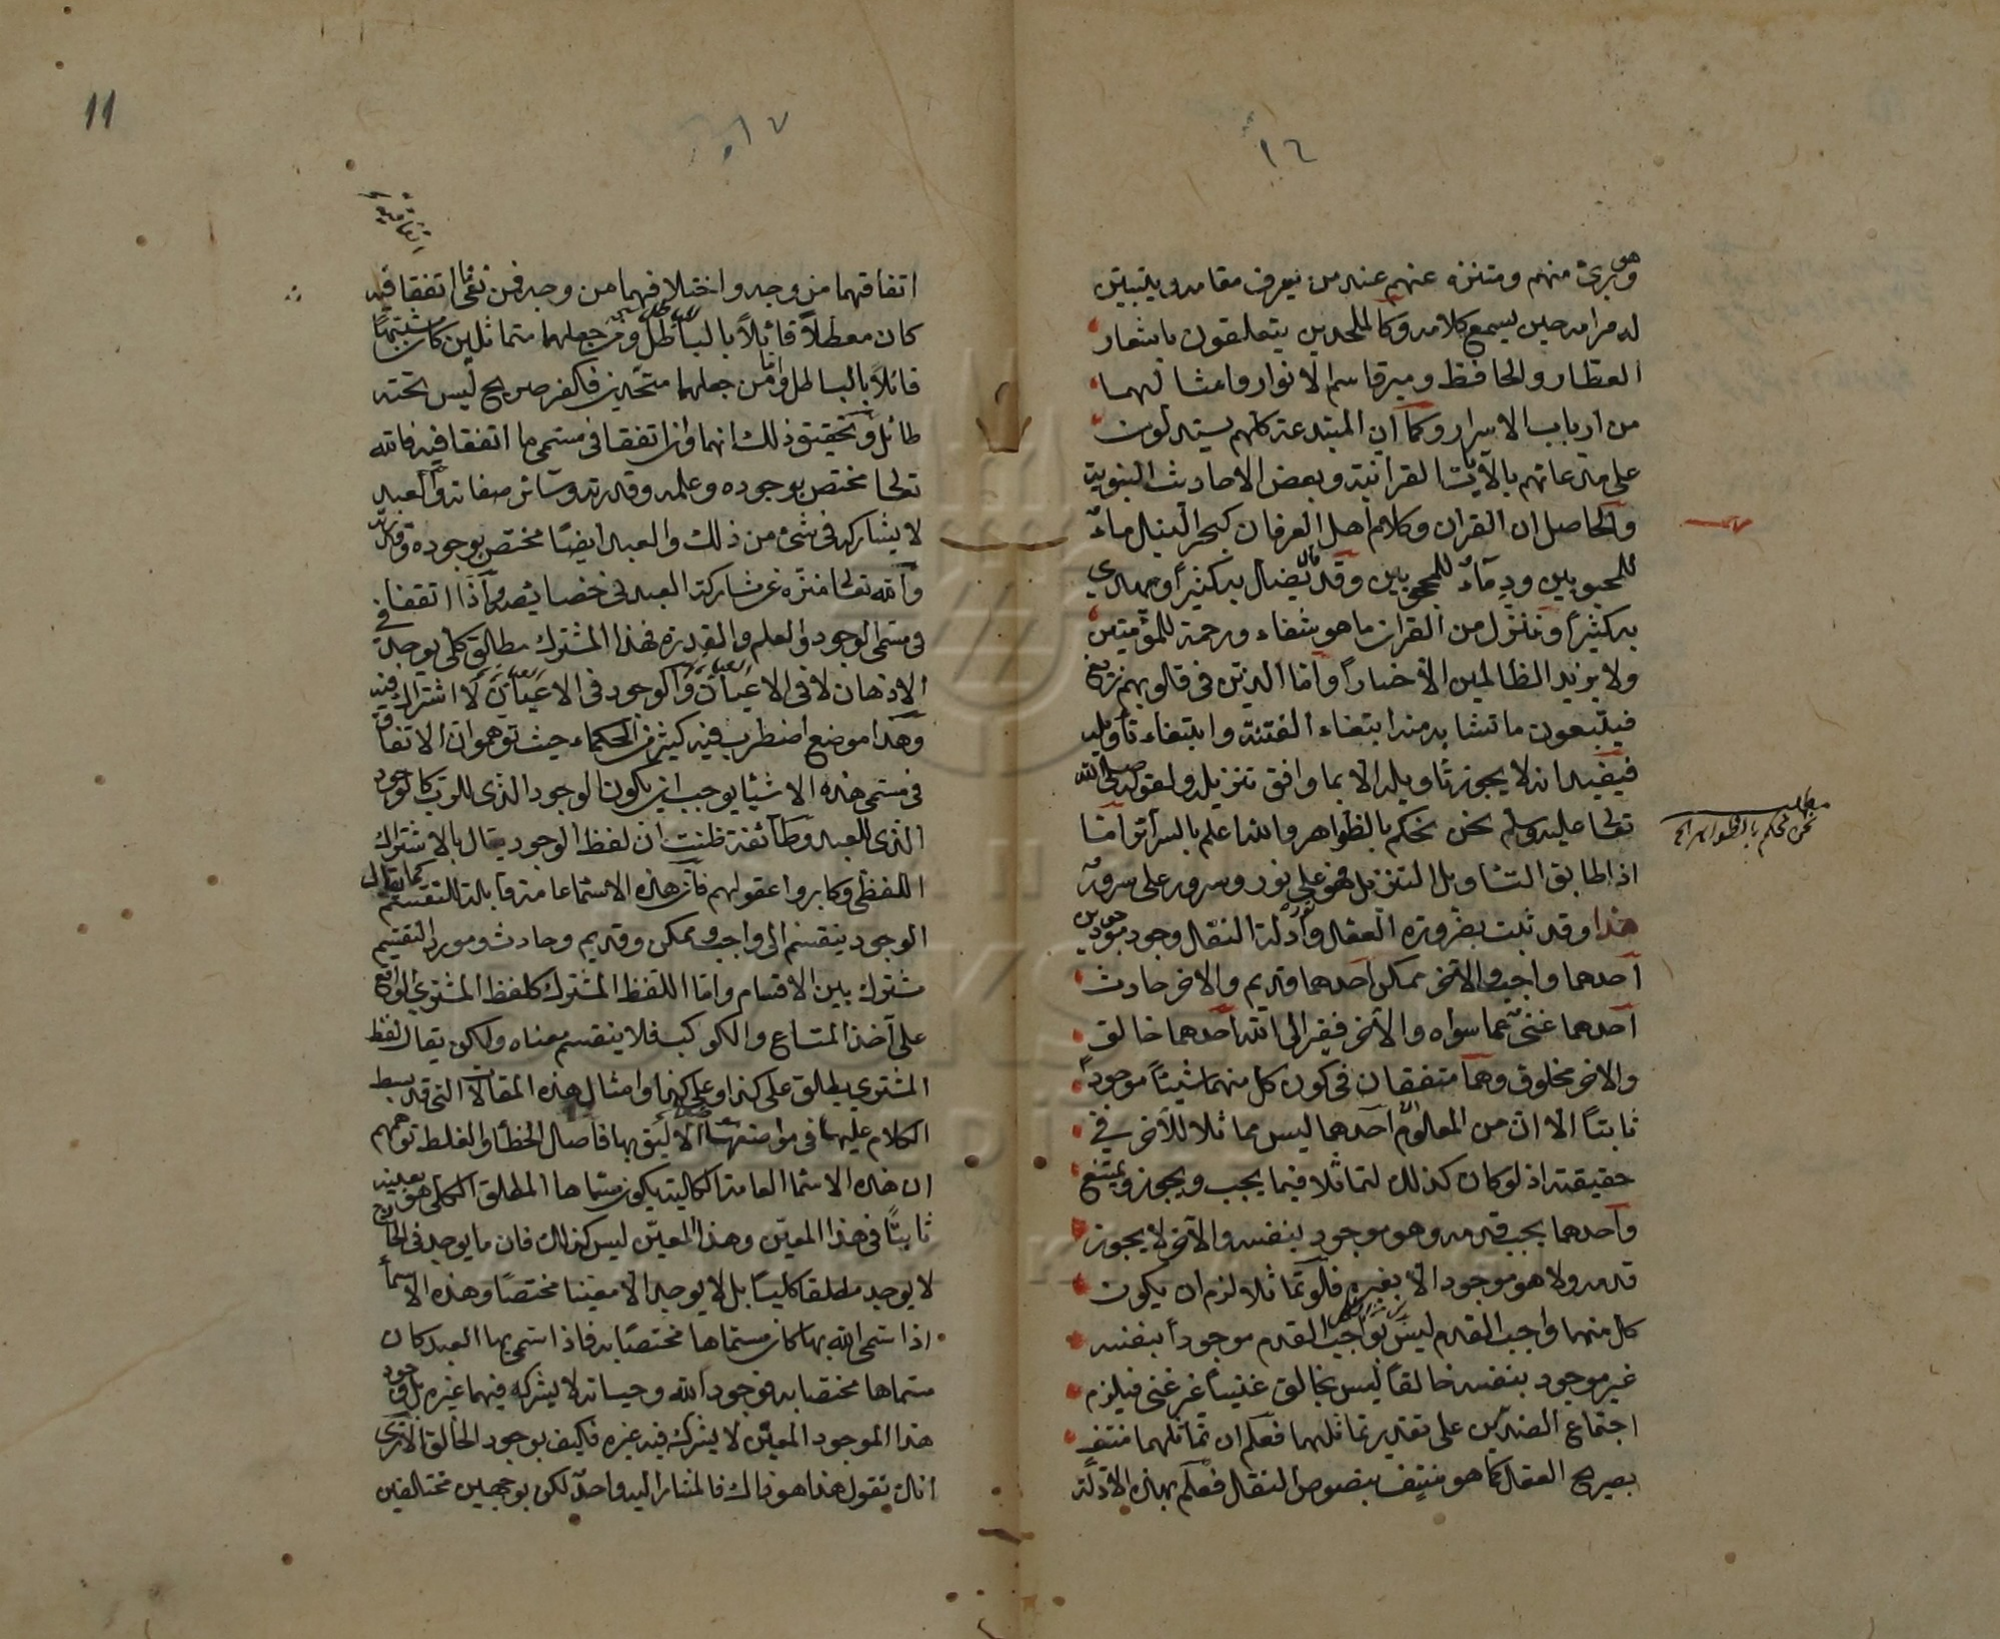 ١٦
وهو برئ منهم ومتنزه عنهم عند من يعرف مقامه ويتبين
له مرامه حين يسمع كلامه وكالملحدين يتعلقون باشعار
العطار والحافظ وميرقاسم الانوار وامثالهما
من ارباب الاسرار وكما ان المبتدعة كلهم يستدلون
على مدعاتهم بالآيات القرانية وبعض الاحاديث النبوية
والحاصل ان القران وكلام اهل العرفان كبحر النيل ماء
للمحبوبين ودماء للمحجوبين وقد قال يضل به كثيرا ويهدى
به كثيرا وننزل من القران ما هو شفاء ورحمة للمؤمنين
ولا يزيد الظالمين الا خسارا واما الذين فى قلوبهم زيغ
فيتبعون ما تشابه منه ابتغاء الفتنة وابتغاء تأويله
فيفيد انه لا يجوز تاويله الا بما وافق تنزيله ولقوله صلى الله
تعالى عليه وسلم نحن نحكم بالظواهر والله اعلم بالسرائر واما
اذا طابق التاويل التنزيل فهو نور على نور وسرور على سرور
هذا وقد ثبت بضرورة العقل وادلة النقل وجود موجودين
احدهما واجب والآخر ممكن احدهما قديم والاخر حادث
احدهما غنى عما سواه والآخر فقير الى الله احدهما خالق
والاخر مخلوق وهما متفقان فى كون كل منهما شيئا موجودا
ثابتا الا ان من المعلوم ان احدهما ليس مماثلا للآخر فى
حقيقته اذ لو كان كذلك لتماثلا فيما يجب ويجوز ويمتنع
واحدهما يجب قدمه وهو موجود بنفسه والآخر لا يجوز
قدمه ولا هو موجود الا بغيره فلو تماثلا لزم ان يكون
كل منهما واجب القدم ليس بواجب القدم موجودا بنفسه
غير موجود بنفسه خالقا ليس بخالق غنيا غير غنى فيلزم
اجتماع الضدين على تقدير تماثلهما فعلم ان تماثلهما منتف
بصريح العقل كما هو منتف بنصوص النقل فعلم بهذه الادلة
مطلب
نحن نحكم بالظواهر الخ
١٧
11
اتفاقهما من وجه واختلافهما من وجه فمن نفى ما اتفقا فيه
كان معطلا قائلا بالباطل ومن جعلهما متماثلين كان مشبها
قائلا بالباطل واما من جعلهما متحدين فاكفر صريح ليس تحته
طائل وتحقيق ذلك انهما وان اتفقا فى مسمى ما اتفقا فيه فالله
تعالى مختص بوجوده وعلمه وقدرته وسائر صفاته والعبد
لا يشاركه فى شئ من ذلك والعبد ايضا مختص بوجوده وقدرته
والله تعالى منزه عن مشاركة العبد فى خصائصه واذا اتفقا فى
فى مسمى الوجود والعلم والقدرة فهذا المشترك مطلق كلى يوجد فى
الاذهان لا فى الاعيان والموجود فى الاعيان لا اشتراك فيه
وهذا موضع اضطرب فيه كثير من الحكماء حيث توهموا ان الاتفاق
فى مسمى هذه الاشيا يوجب ان يكون الوجود الذى للرب كالوجود
الذى للعبد وطائفة ظنت ان لفظ الوجود يقال بالاشتراك
اللفظى وكابروا عقولهم فان هذه الاسماء عامة قابلة للتقسيم كما يقال
الوجود ينقسم الى واجب وممكن وقديم وحادث ومورد التقسيم
مشترك بين الاقسام واما اللفظ المشترك كلفظ المشترى الواقع
على آخذ المتاع والكوكب فلا ينقسم معناه ولكن يقال لفظ
المشترى يطلق على كذا وعلى كذا وامثال هذه المقالات التى قد بسط
الكلام عليها فى مواضعها الاليق بها فاصل الخطأ والغلط توهمهم
ان هذه الاسما العامة الكلية يكون مسماها المطلق الكلى هو بعينه
ثابتا فى هذا المعين وهذا المعين ليس كذلك فان ما يوجد فى الخارج
لا يوجد مطلقا كليا بل لا يوجد الا معينا مختصا وهذه الاسما
اذا سمى الله بها كان مسماها مختصا به فاذا سمى بها العبد كان
مسماها مختصا به فوجود الله وحياته لا يشركه فيهما غيره بل وجود
هذا الموجود المعين لا يشركه فيه غيره فكيف بوجود الخالق الا ترى
انك تقول هذا هو ذاك فالمشار اليه واحد لكن بوجهين مختلفين